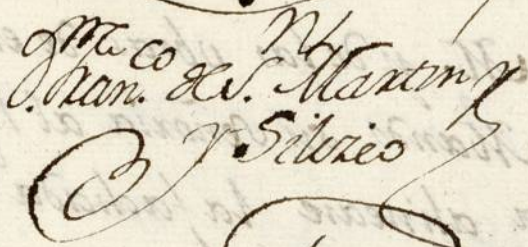 D.ⁿ Fran.co de S. Martin
y Silizeo